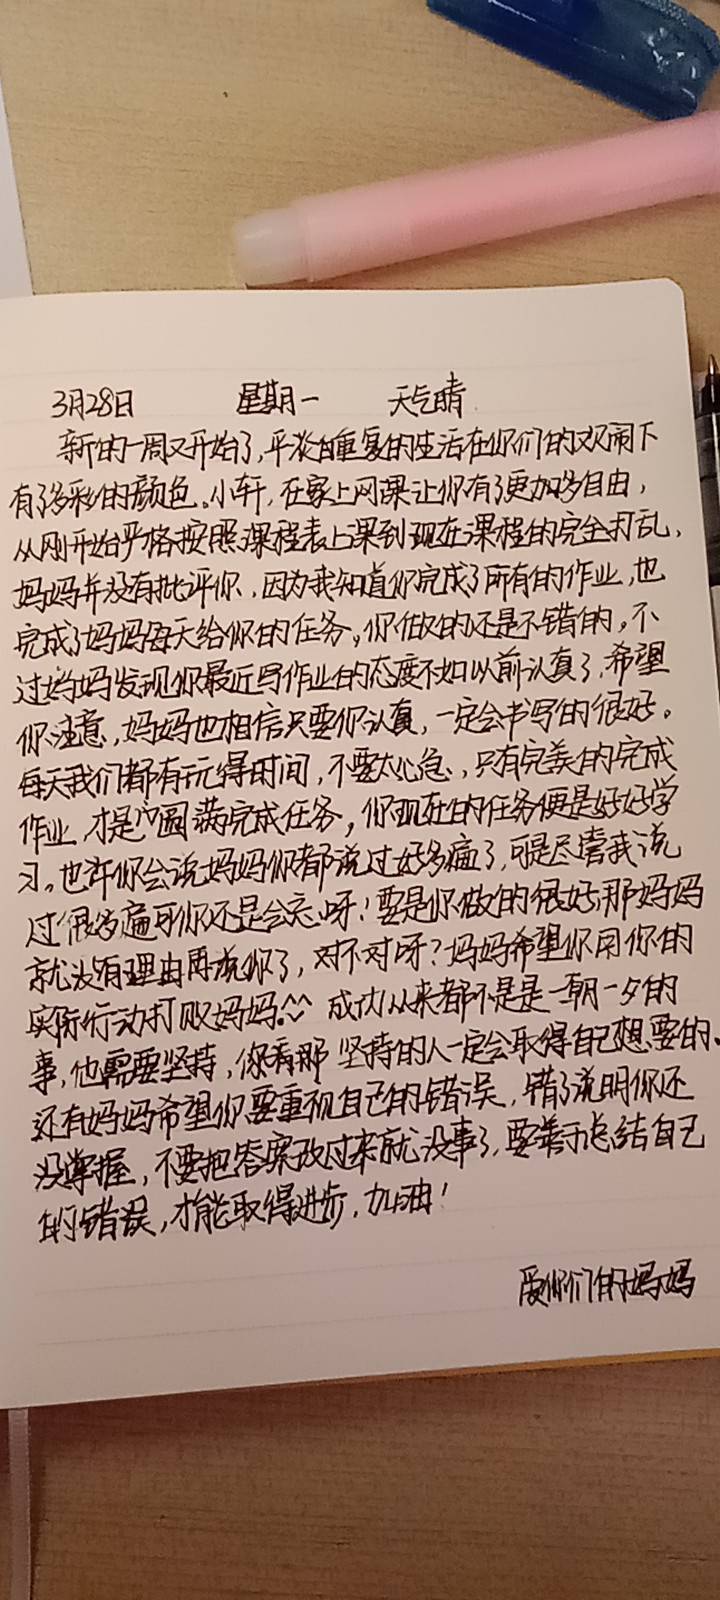 3月28日 星期一 天气晴
新的一周又开始了,平淡重复的生活在你们的欢闹下
有了多彩的颜色。小轩,在家上网课让你有了更加多自由,
从刚开始严格按照课程表上课到现在课程的完全打乱,
妈妈并没有批评你,因为我知道你完成了所有的作业,也
完成了妈妈每天给你的任务,你做的还是不错的。不
过妈妈发现你最近写作业的态度不如以前认真了,希望
你注意,妈妈也相信只要你认真,一定会书写的很好。
每天我们都有玩得时间,不要太心急,只有完美的完成
作业,才是圆满完成任务,你现在的任务便是好好学
习。也许你会说妈妈你都说过好多遍了,可是尽管我说
过很多遍可你还是会忘呀!要是你做的很好,那妈妈
就没有理由再说你了,对不对呀?妈妈希望你用你的
实际行动打败妈妈。^^ 成功从来都不是是一朝一夕的
事,他需要坚持,你看那坚持的人一定会取得自己想要的、
还有妈妈希望你要重视自己的错误,错了说明你还
没掌握,不要把答案改过来就没事了,要善于总结自己
的错误,才能取得进步,加油!
爱你们的妈妈